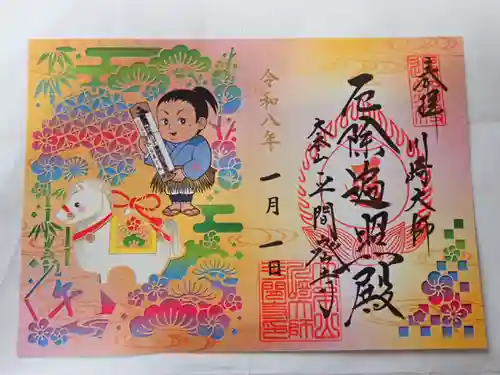 奉拝
川崎大師
厄除遍照殿
大本山 平間寺
令和八年
一月一日